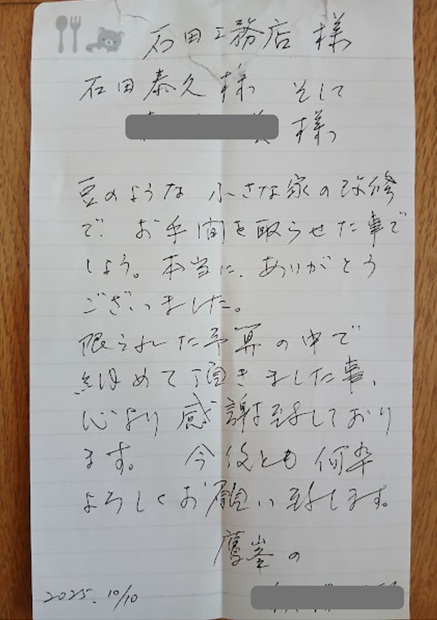 石田工務店 様
石田泰久 様 そして
様
豆のような 小さな家の改修
で、お手間を取らせた事で
しょう。本当に、ありがとう
ございました。
限られた予算の中で
納めて頂きました事、
心より 感謝致しており
ます。 今後とも 何卒
よろしくお願い致します。
鷹峯の
2025.10/10